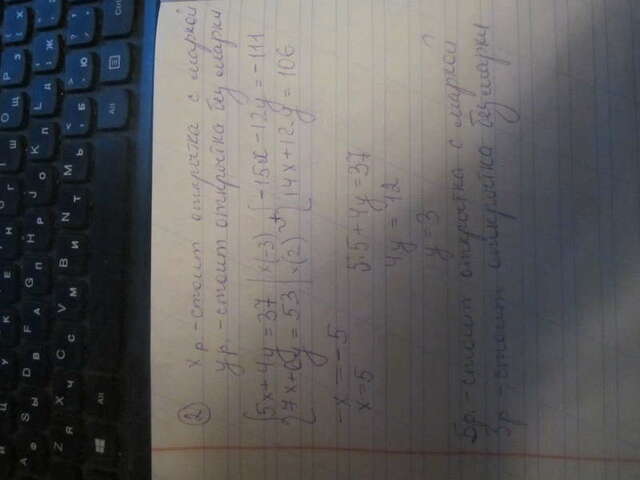 ② х р.-стоит открытка с маркой
у р.-стоит открытка без марки
{5x+4y=37 |×(-3) {-15x-12y=-111
{7x+6y=53 |×(2) + {14x+12y=106
-x=-5
x=5
5·5+4y=37
4y=12
y=3
5р.-стоит открытка с маркой
3р-стоит открытка без марки